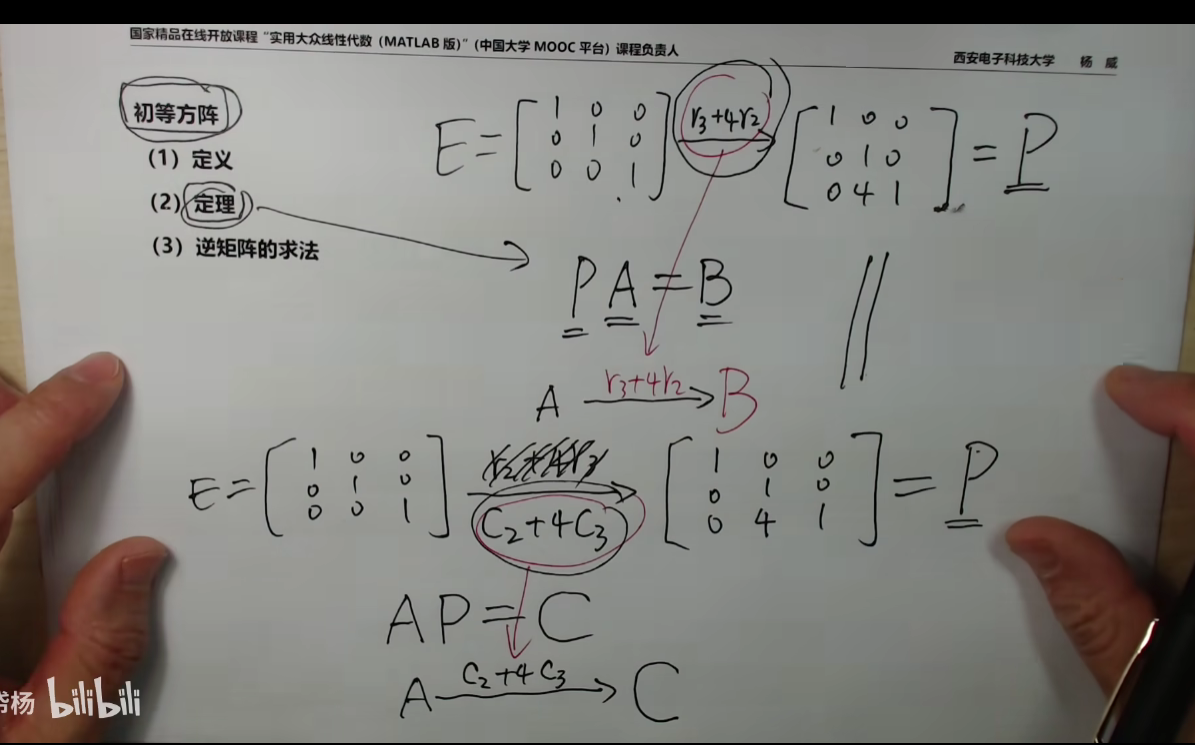 国家精品在线开放课程“实用大众线性代数（MATLAB 版）”（中国大学 MOOC 平台）课程负责人
西安电子科技大学 杨 威
初等方阵
（1）定义
（2）定理
（3）逆矩阵的求法
E = [1 0 0 r₃+4r₂ [1 0 0
0 1 0 0 1 0 = P
0 0 1] 0 4 1]
PA = B
A r₃+4r₂ B
E = [1 0 0 [1 0 0
0 1 0 0 1 0 = P
0 0 1] C₂+4C₃ 0 4 1]
AP = C
A C₂+4C₃ C
杨 bilibili